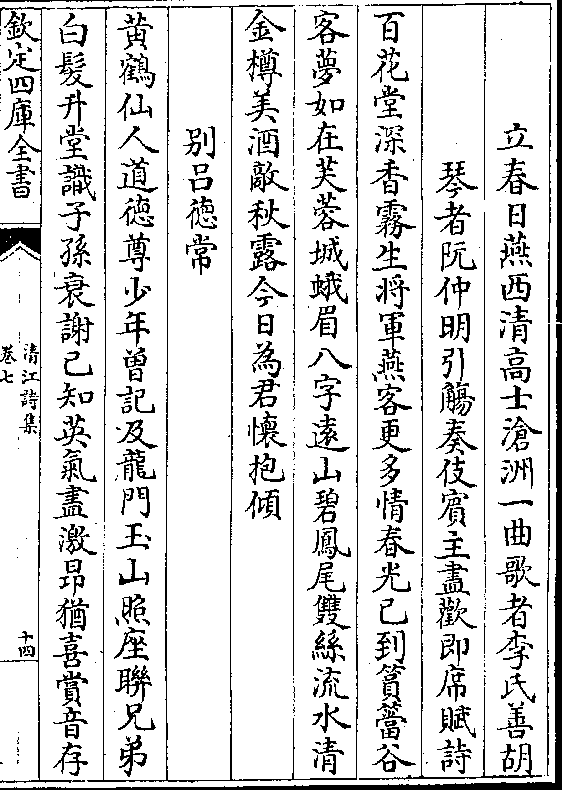 立春日燕西清高士滄洲一曲歌者李氏善胡
琴者阮仲明引觴奏伎賓主盡歡即席賦詩
百花堂深香霧生將軍燕客更多情春光已到篔簹谷
客夢如在芙蓉城蛾眉八字遠山碧鳳尾雙絲流水清
金樽美酒敵秋露今日為君懷抱傾
别吕徳常
黄鶴仙人道徳尊少年曽記及龍門玉山照座聯兄弟
白髪升堂識子孫衰謝已知英氣盡激昂猶喜賞音存
欽定四庫全書
清江詩集
卷七
十四